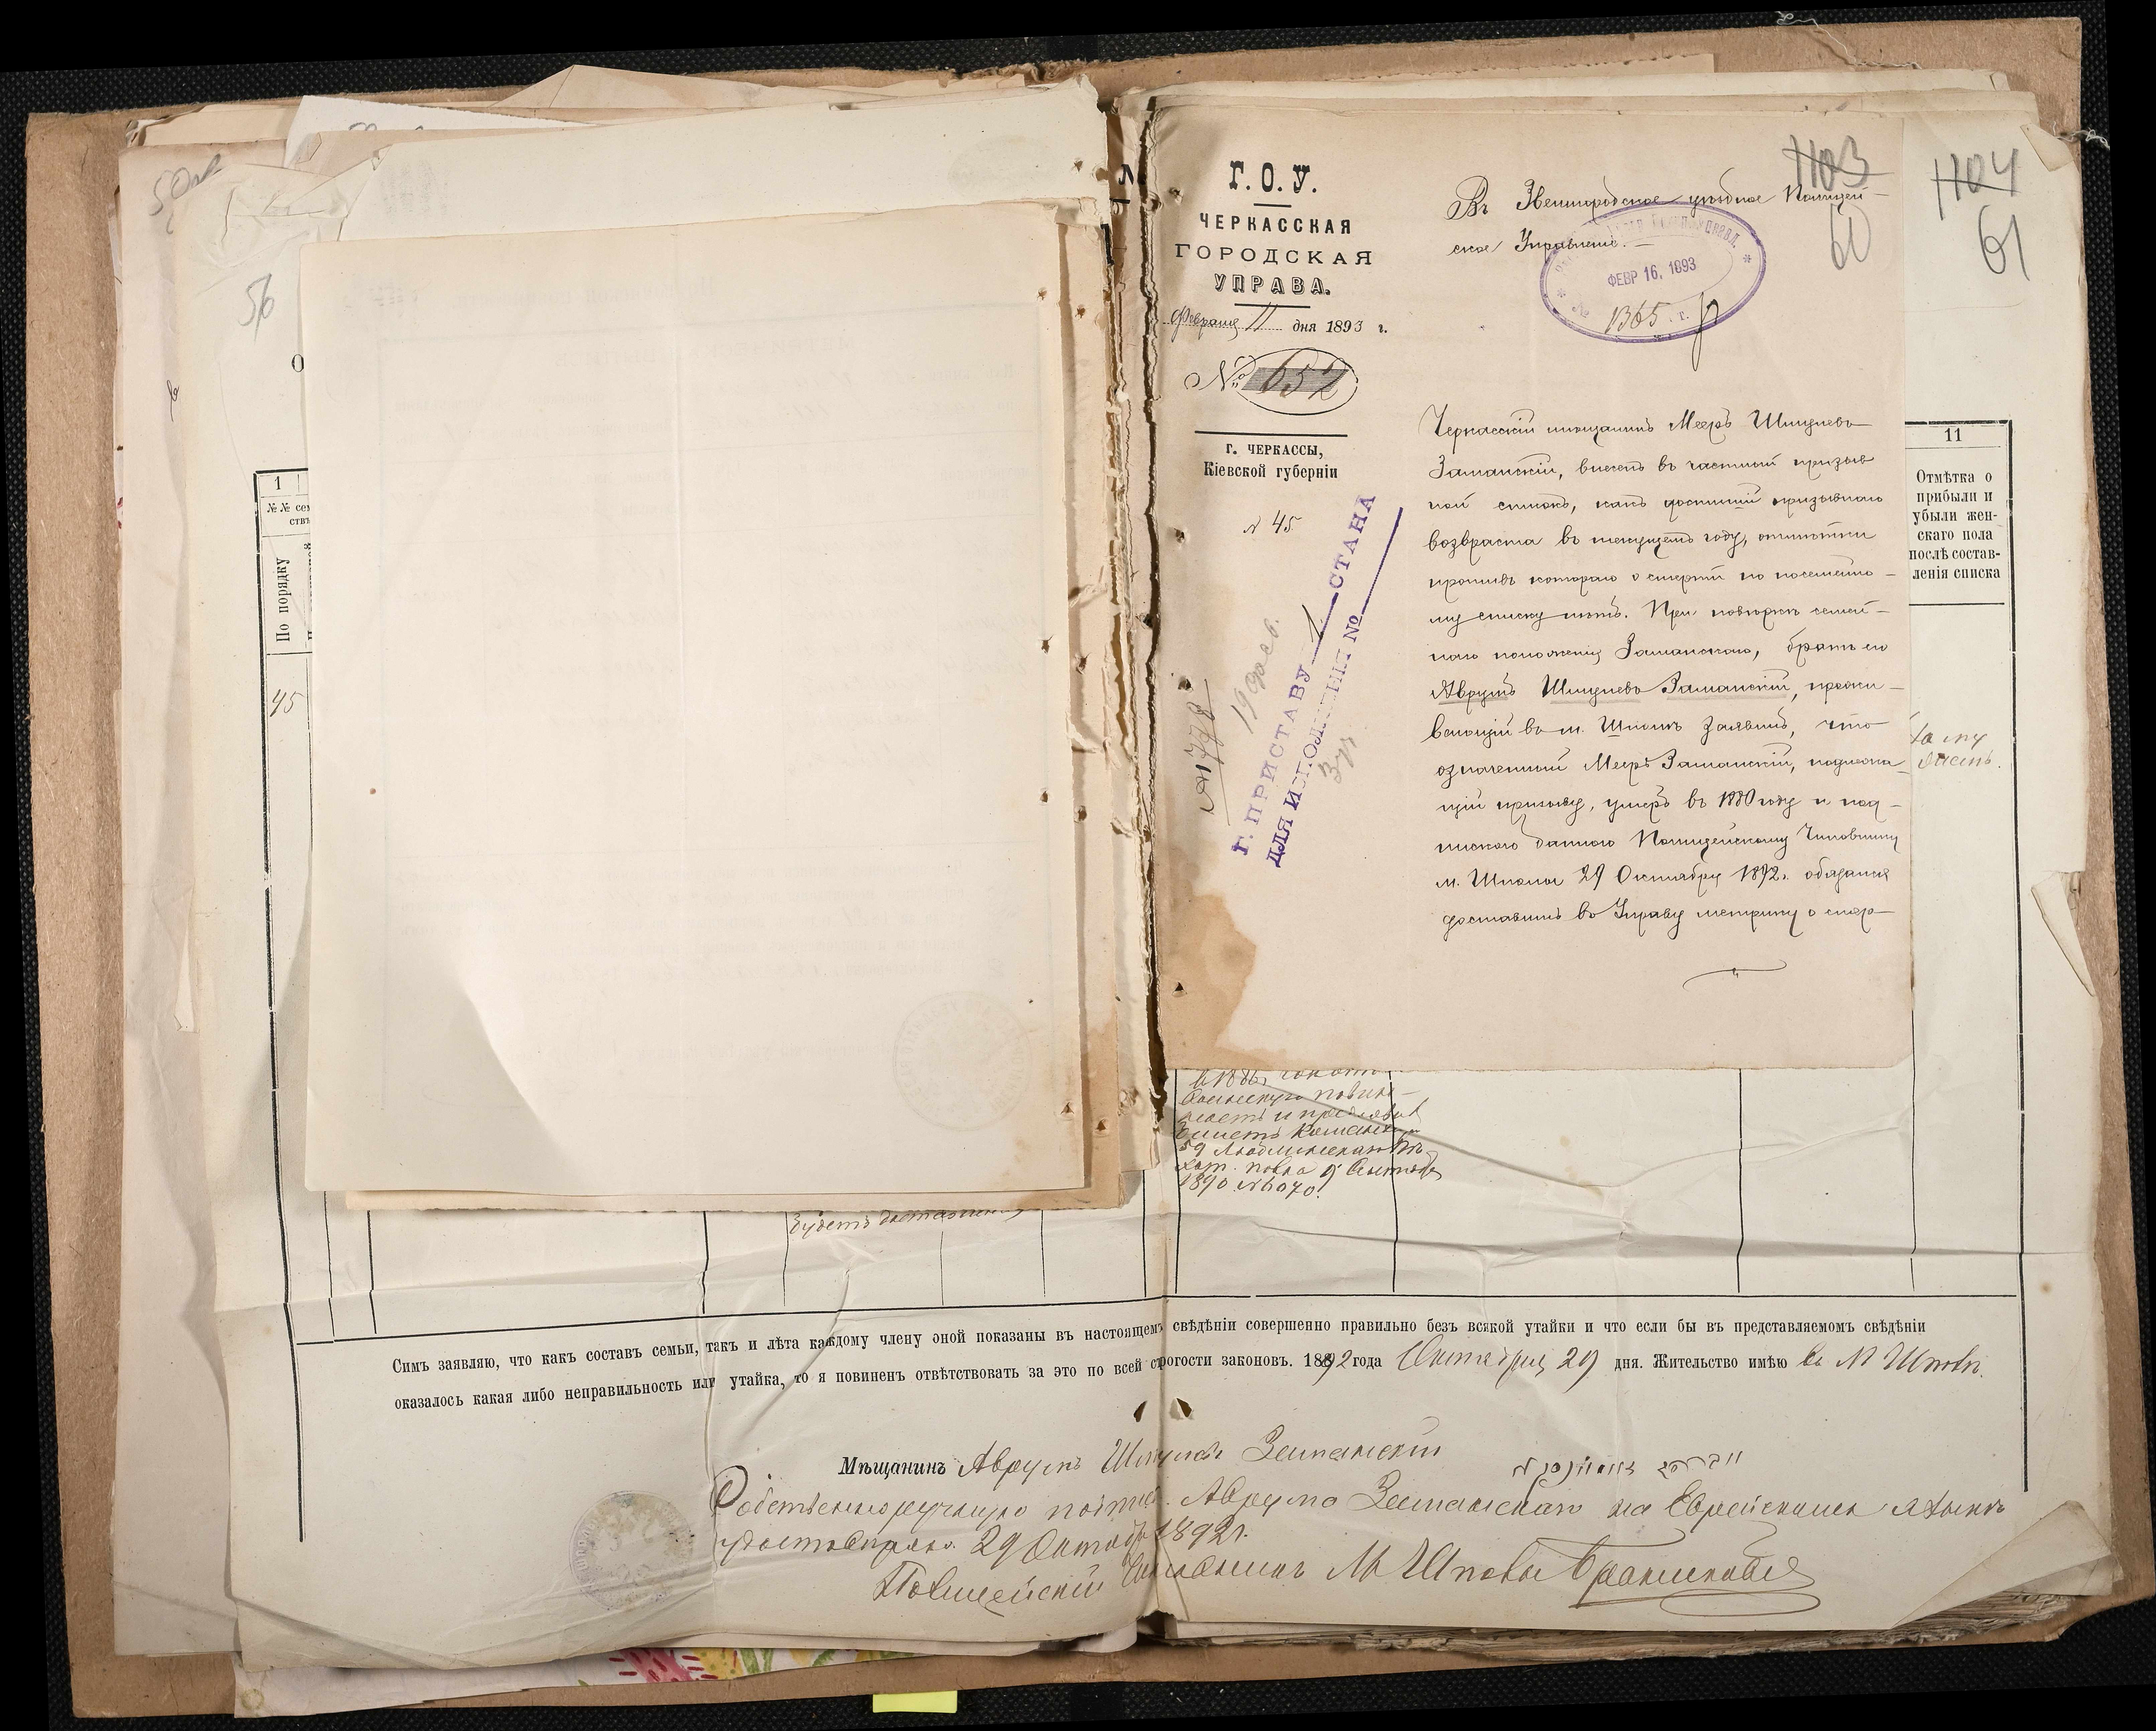 56
1
№№ сем
ствъ
По порядку
45
Г. О. У.
ЧЕРКАССКАЯ
ГОРОДСКАЯ
УПРАВА.
Февраля 11 дня 1893 г.
№ 652
г. ЧЕРКАССЫ,
Кіевской губерніи
№ 45
№ 1778
19 фев.
Г. ПРИСТАВУ 1 СТАНА
ДЛЯ ИСПОЛНЕНІЯ №
1103
60
Въ Звенигородское уѣздное Полицей-
ское Управленіе.
ФЕВР 16. 1893
1365
Черкасскій мѣщанинъ Мееръ Шмулевъ
Заманскій, внесенъ въ частный призыв
ной списокъ, какъ достигшій призывнаго
возвраста въ текущемъ году, отмѣтки
противъ котораго о смерти по посемейно-
му списку нѣтъ. При повѣркѣ семей-
наго положенія Заманскаго, братъ его
Аврумъ Шмулевъ Заманскій, прожи-
вающій въ м. Шполѣ заявилъ, что
означенный Мееръ Заманскій, подлежа-
щій призыву, умеръ въ 1880 году и под-
пискою данною Полицейскому Чиновнику
м. Шполы 29 Октября 1892 г. обязался
доставить въ Управу метрику о смер-
1104
61
11
Отмѣтка о
прибыли и
убыли жен-
скаго пола
послѣ состав-
ленія списка
будетъ доставлена
повин-
59 Люблинскаго
полка 9 Сентября
1890 № 6070.
Симъ заявляю, что какъ составъ семьи, такъ и лѣта каждому члену оной показаны въ настоящемъ свѣдѣніи совершенно правильно безъ всякой утайки и что если бы въ представляемомъ свѣдѣніи
оказалось какая либо неправильность или утайка, то я повиненъ отвѣтствовать за это по всей строгости законовъ. 1892 года Октября 29 дня. Жительство имѣю въ М Шполѣ.
Мѣщанинъ Аврумъ Шмулевъ Заманскій
Собственноручную подпись Аврума Заманскаго на Еврейскомъ языкѣ
удостовѣряю. 29 Октября 1892 г.
Полицейскій Чиновникъ М Шполы